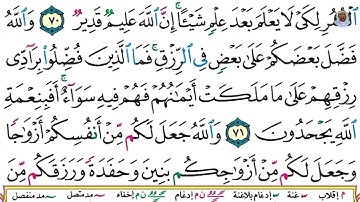 ٱلْعُمُرِ لِكَىْ لَا يَعْلَمَ بَعْدَ عِلْمٍ شَيْـًٔا ۚ إِنَّ ٱللَّهَ عَلِيمٌ قَدِيرٌ ٧٠ وَٱللَّهُ
فَضَّلَ بَعْضَكُمْ عَلَىٰ بَعْضٍ فِى ٱلرِّزْقِ ۚ فَمَا ٱلَّذِينَ فُضِّلُوا۟ بِرَآدِّى
رِزْقِهِمْ عَلَىٰ مَا مَلَكَتْ أَيْمَـٰنُهُمْ فَهُمْ فِيهِ سَوَآءٌ ۚ أَفَبِنِعْمَةِ
ٱللَّهِ يَجْحَدُونَ ٧١ وَٱللَّهُ جَعَلَ لَكُم مِّنْ أَنفُسِكُمْ أَزْوَٰجًا
وَجَعَلَ لَكُم مِّنْ أَزْوَٰجِكُم بَنِينَ وَحَفَدَةً وَرَزَقَكُم مِّنَ
م إقلاب غنة إدغام بلا غنة إدغام إخفاء مد متصل مد منفصل